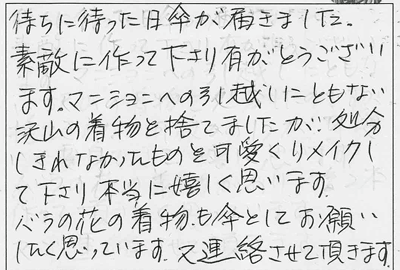 待ちに待った日傘が届きました。
素敵に作って下さり有がとうござい
ます。マンションへの引越しにともない
沢山の着物を捨てましたが、処分
しきれなかったものを可愛くリメイクし
て下さり本当に嬉しく思います。
バラの花の着物も傘としてお願い
したく思っています。又連絡させて頂きます。